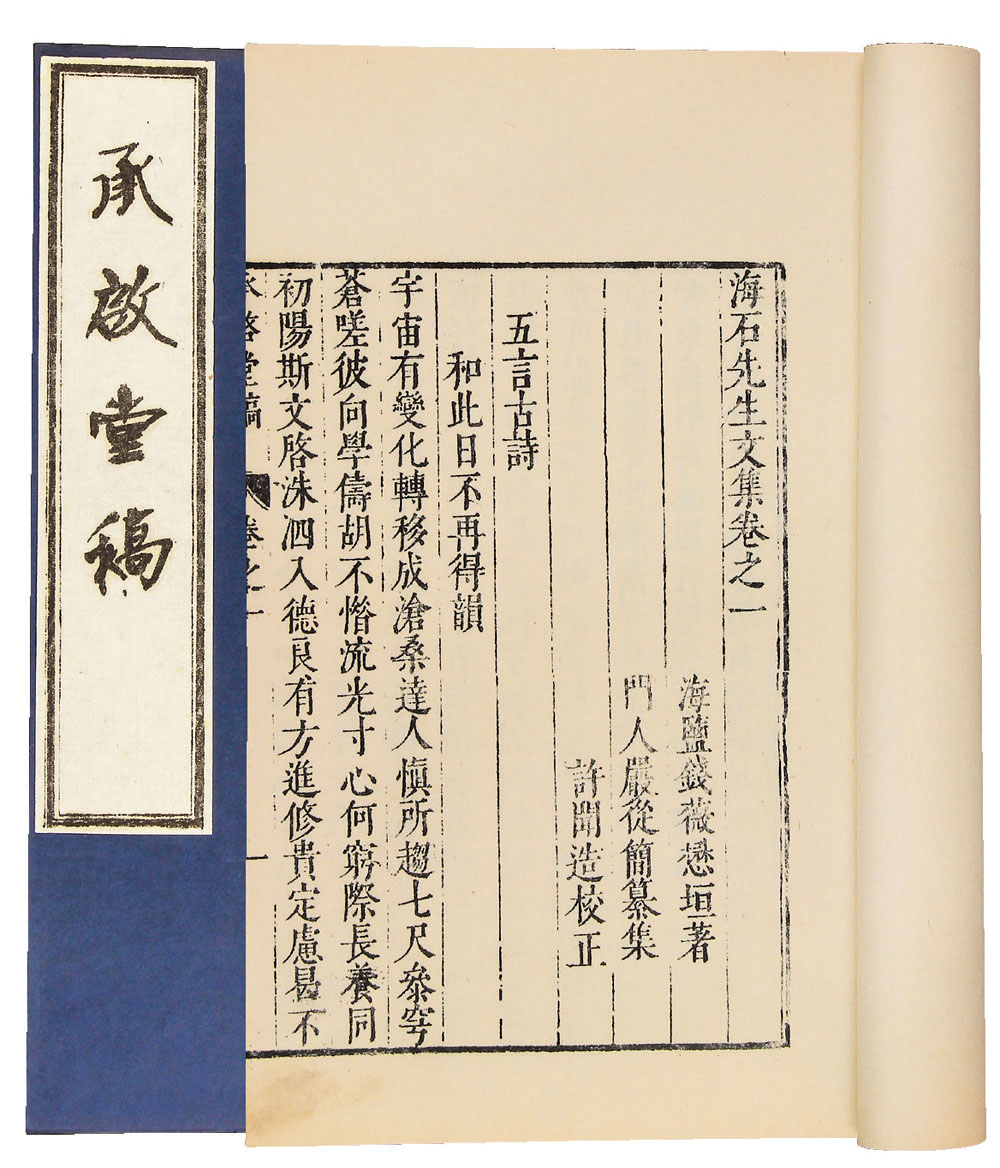 承啟堂稿
海石先生文集卷之一
海鹽錢薇懋垣著
門人嚴從簡纂集
許聞造校正
五言古詩
和此日不再得韻
宇宙有變化轉移成滄桑達人慎所趨七尺參穹
蒼嗟彼向學儔胡不惜流光寸心何窮際長養同
初陽斯文啓洙泗入德良有方進修貴定慮曷不
承啓堂稿 卷之一 一